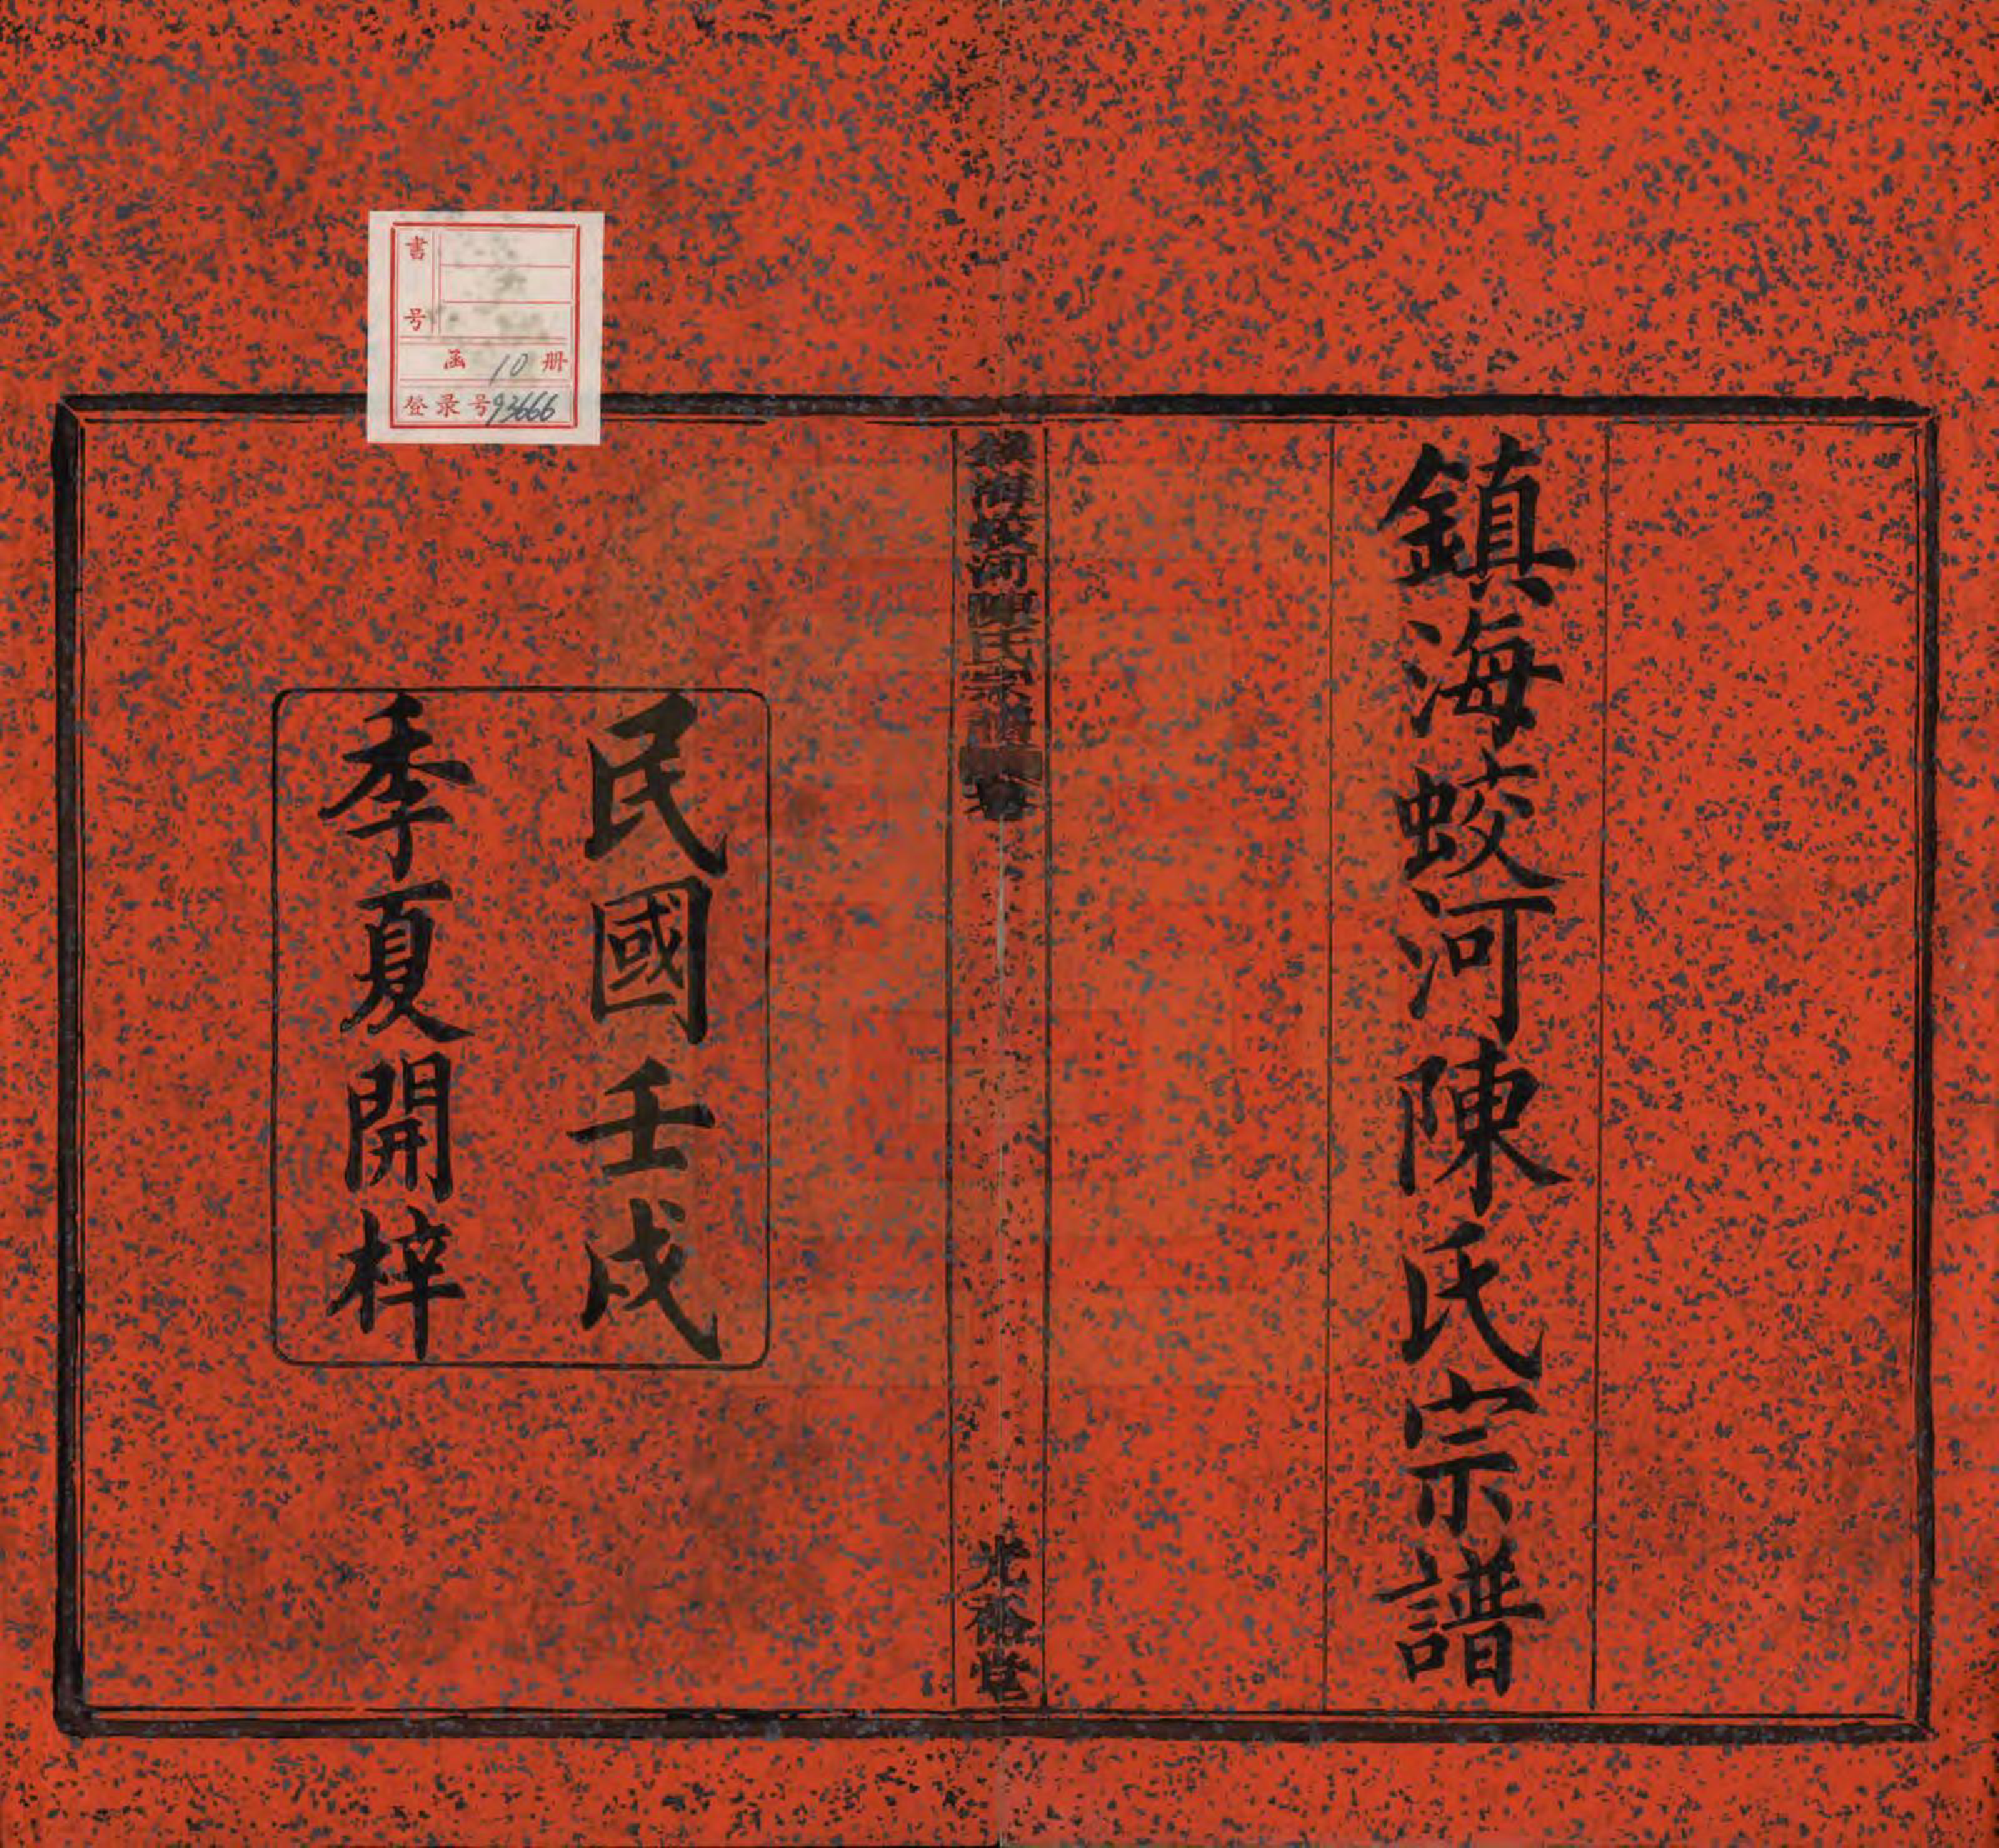 鎮海蛟河陳氏宗譜
鎮海蛟河陳氏宗譜
卷
光裕堂
民國壬戌
季夏開梓
書号
函 10 册
登录号93666